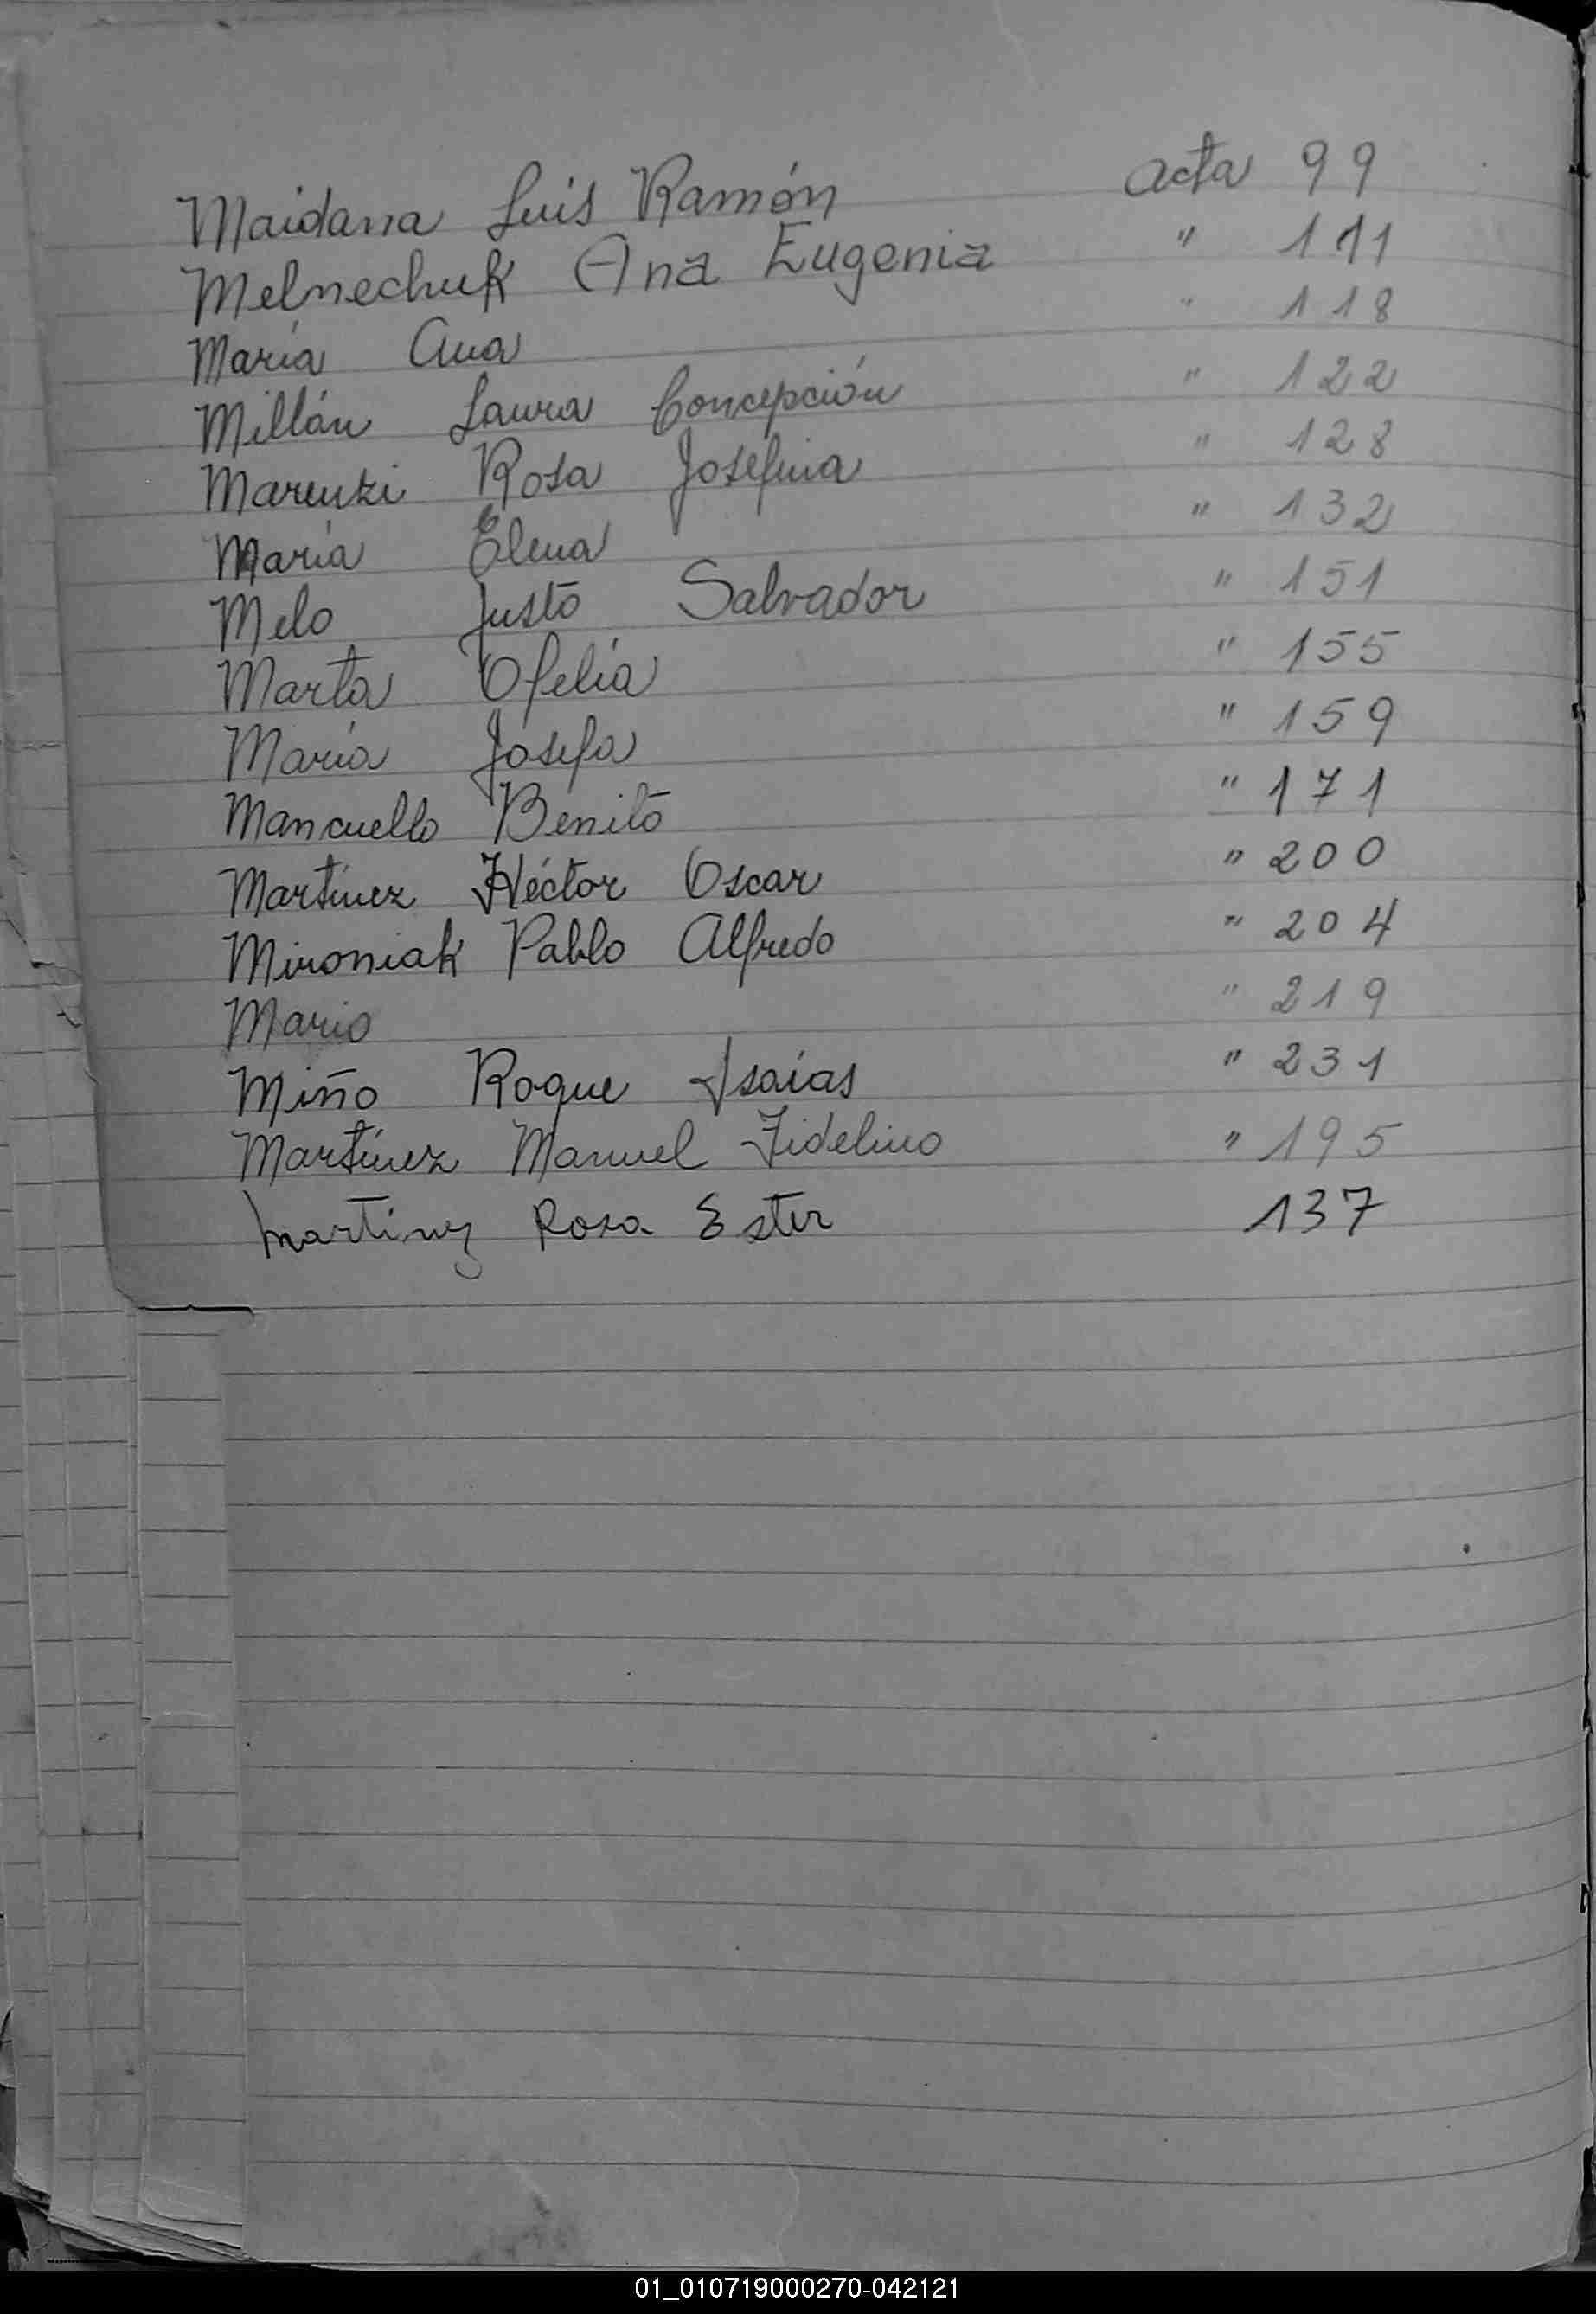 Maidana Luis Ramón acta 99
Melnechuk Ana Eugenia " 111
María Ana " 118
Millán Laura Concepción " 122
Marenzi Rosa Josefina " 128
María Elena " 132
Melo Justo Salvador " 151
Marta Ofelia " 155
María Josefa " 159
Mancuello Benito " 171
Martínez Héctor Oscar " 200
Mironiak Pablo Alfredo " 204
Mario " 219
Miño Roque Isaías " 231
Martínez Manuel Fidelino " 195
Martinez Rosa Ester 137
01_010719000270-042121